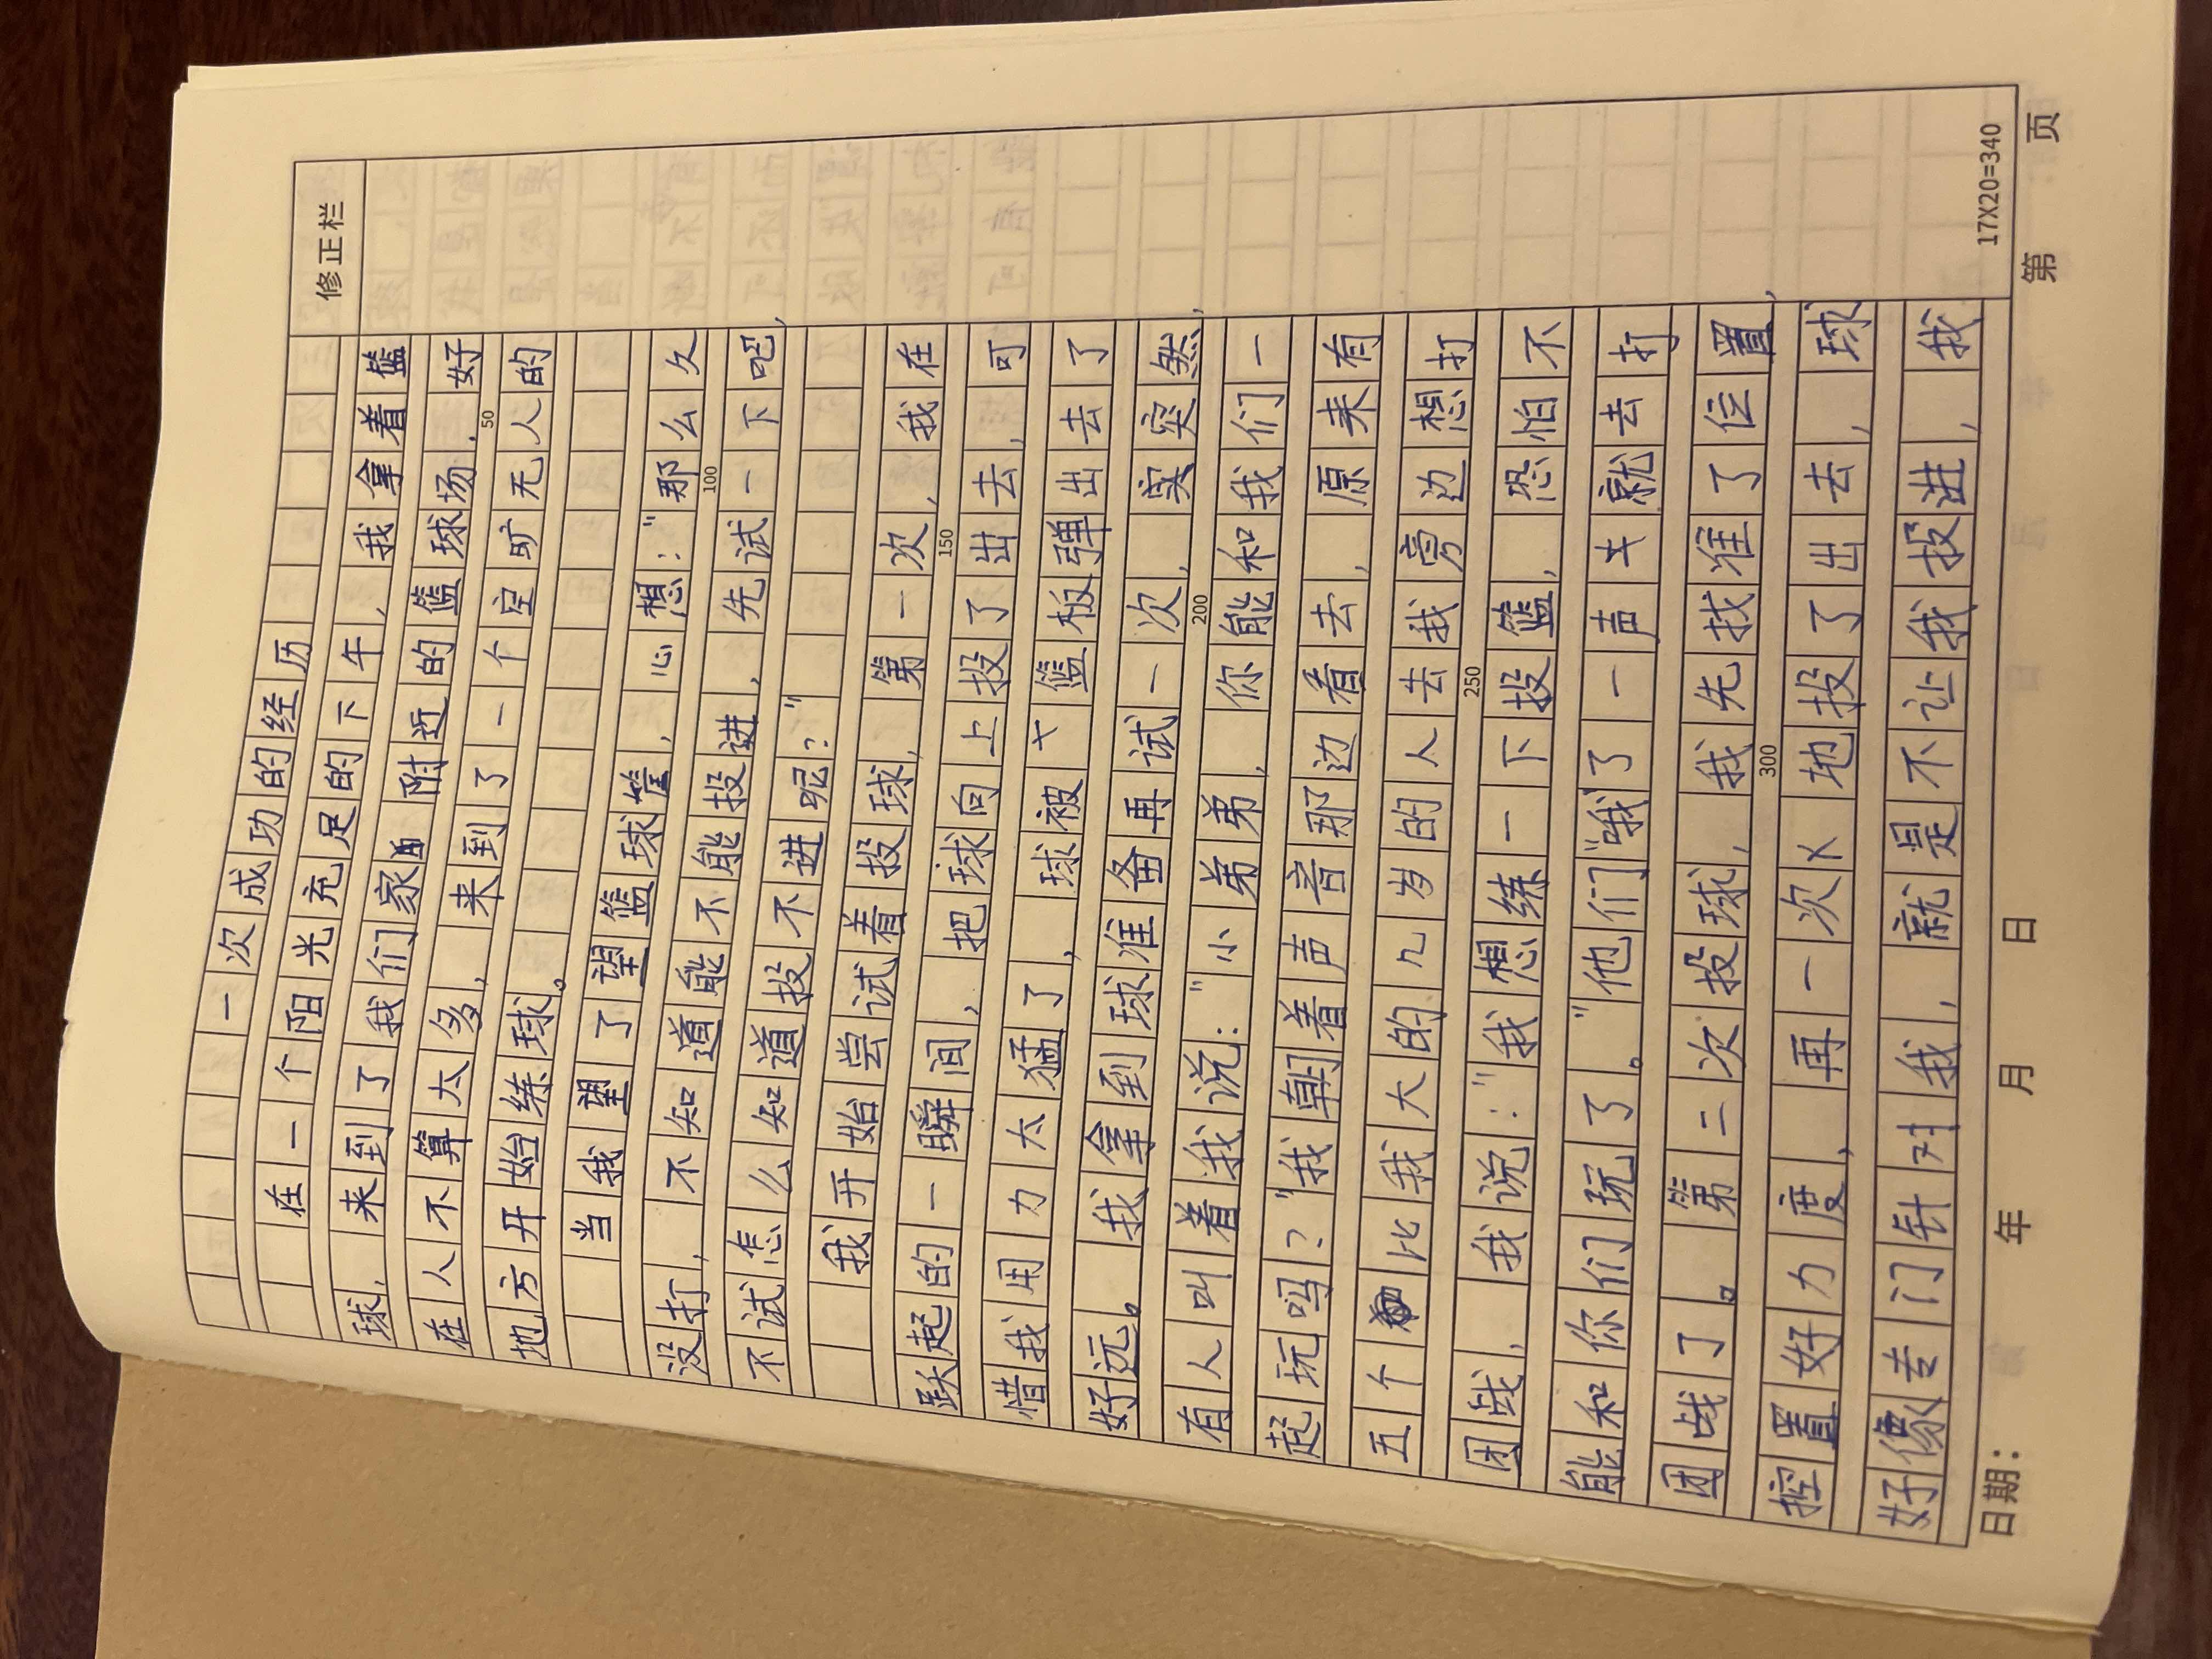 修正栏
一次成功的经历
在一个阳光充足的下午,我拿着篮
球,来到了我们家附近的篮球场.好
50
在人不算太多,来到了一个空旷无人的
地方开始练球。
当我望了望篮球筐,心想:"那么久
100
没打,不知道能不能投进,先试一下吧,
不试怎么知道投不进呢?"
我开始尝试着投球,第一次,我在
150
跃起的一瞬间,把球向上投了出去,可
惜我用力太猛了,球被篮板弹出去了
好远。我拿到球准备再试一次,突然,
200
有人叫着我说:"小弟弟,你能和我们一
起玩吗?"我朝着声音那边看去,原来有
五个比我大的几岁的人去我旁边想打
250
团战,我说:"我想练一下投篮,恐怕不
能和你们玩了。"他们"哦"了一声就去打
团战了。第二次投球,我先找准了位置,
300
控置好力度,再一次地投了出去,球
好像专门针对我,就是不让我投进,我
17X20=340
日期: 年 月 日 第 页